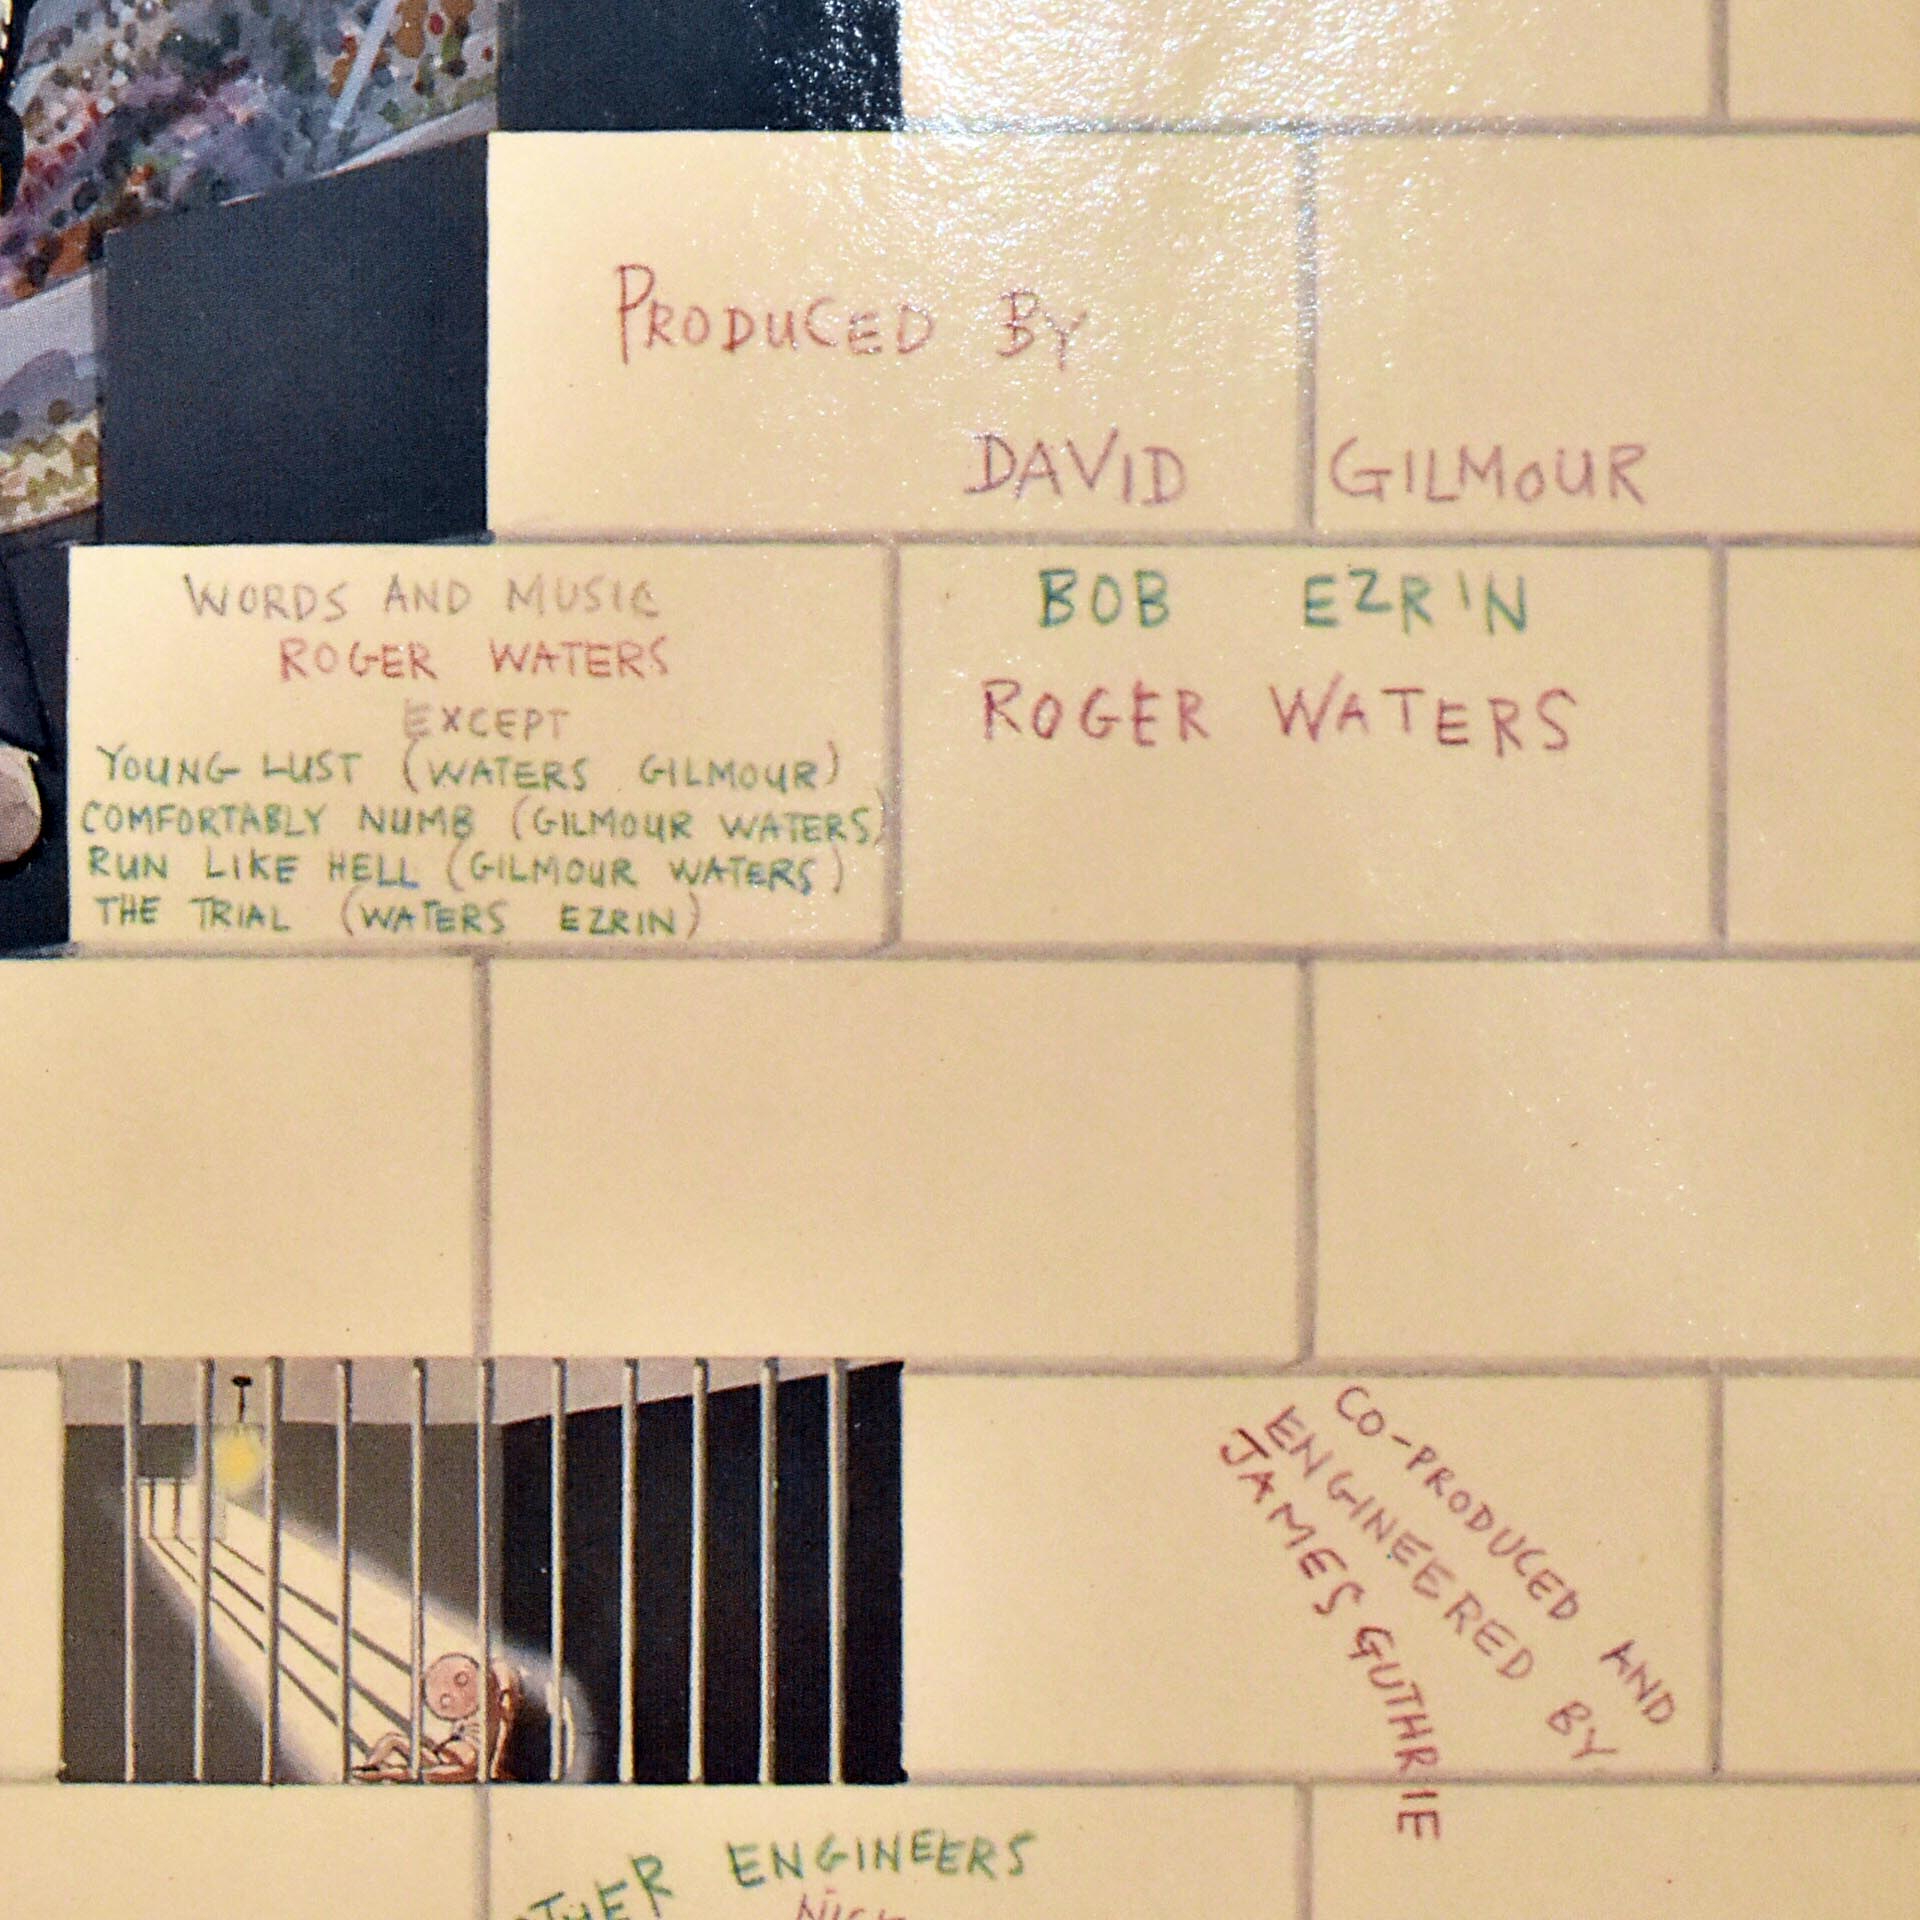 PRODUCED BY
DAVID GILMOUR
BOB EZRIN
ROGER WATERS
WORDS AND MUSIC
ROGER WATERS
EXCEPT
YOUNG LUST (WATERS GILMOUR)
COMFORTABLY NUMB (GILMOUR WATERS)
RUN LIKE HELL (GILMOUR WATERS)
THE TRIAL (WATERS EZRIN)
CO-PRODUCED AND
ENGINEERED BY
JAMES GUTHRIE
OTHER ENGINEERS
NICK